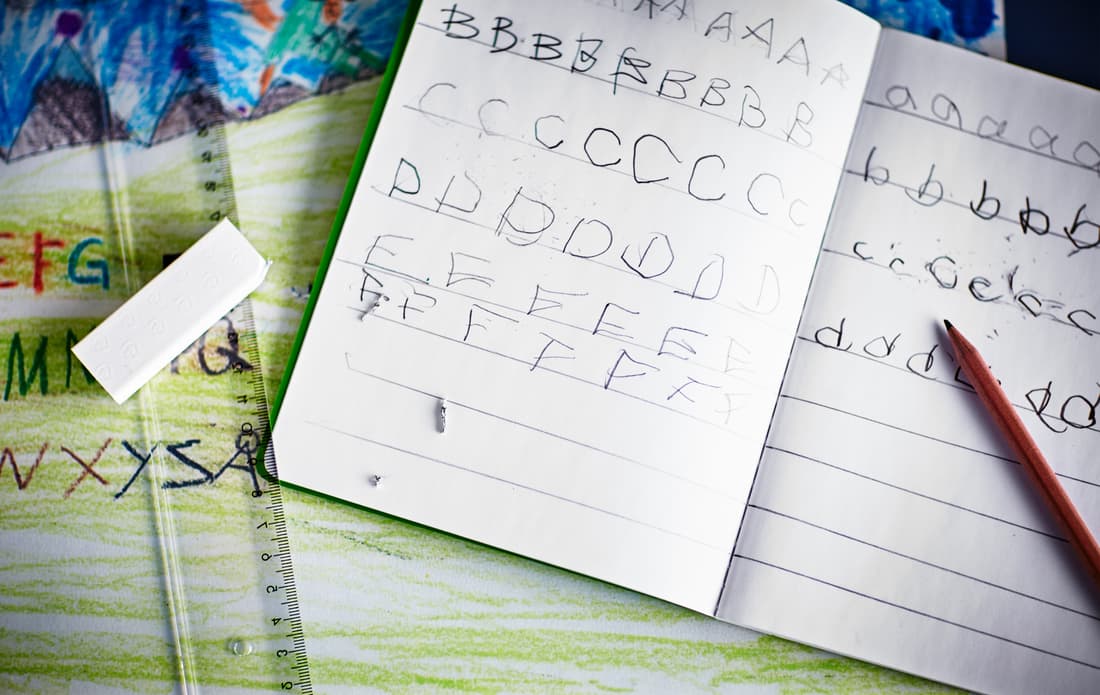 A A A A A A A
B B B B B B B B B B
C C C C C C C C
D D D D D D D
E E E E E E
F F F F F F F
a a a a a
b b b b b
c c c c c c c
d d d d d
EFG
M
XYSA